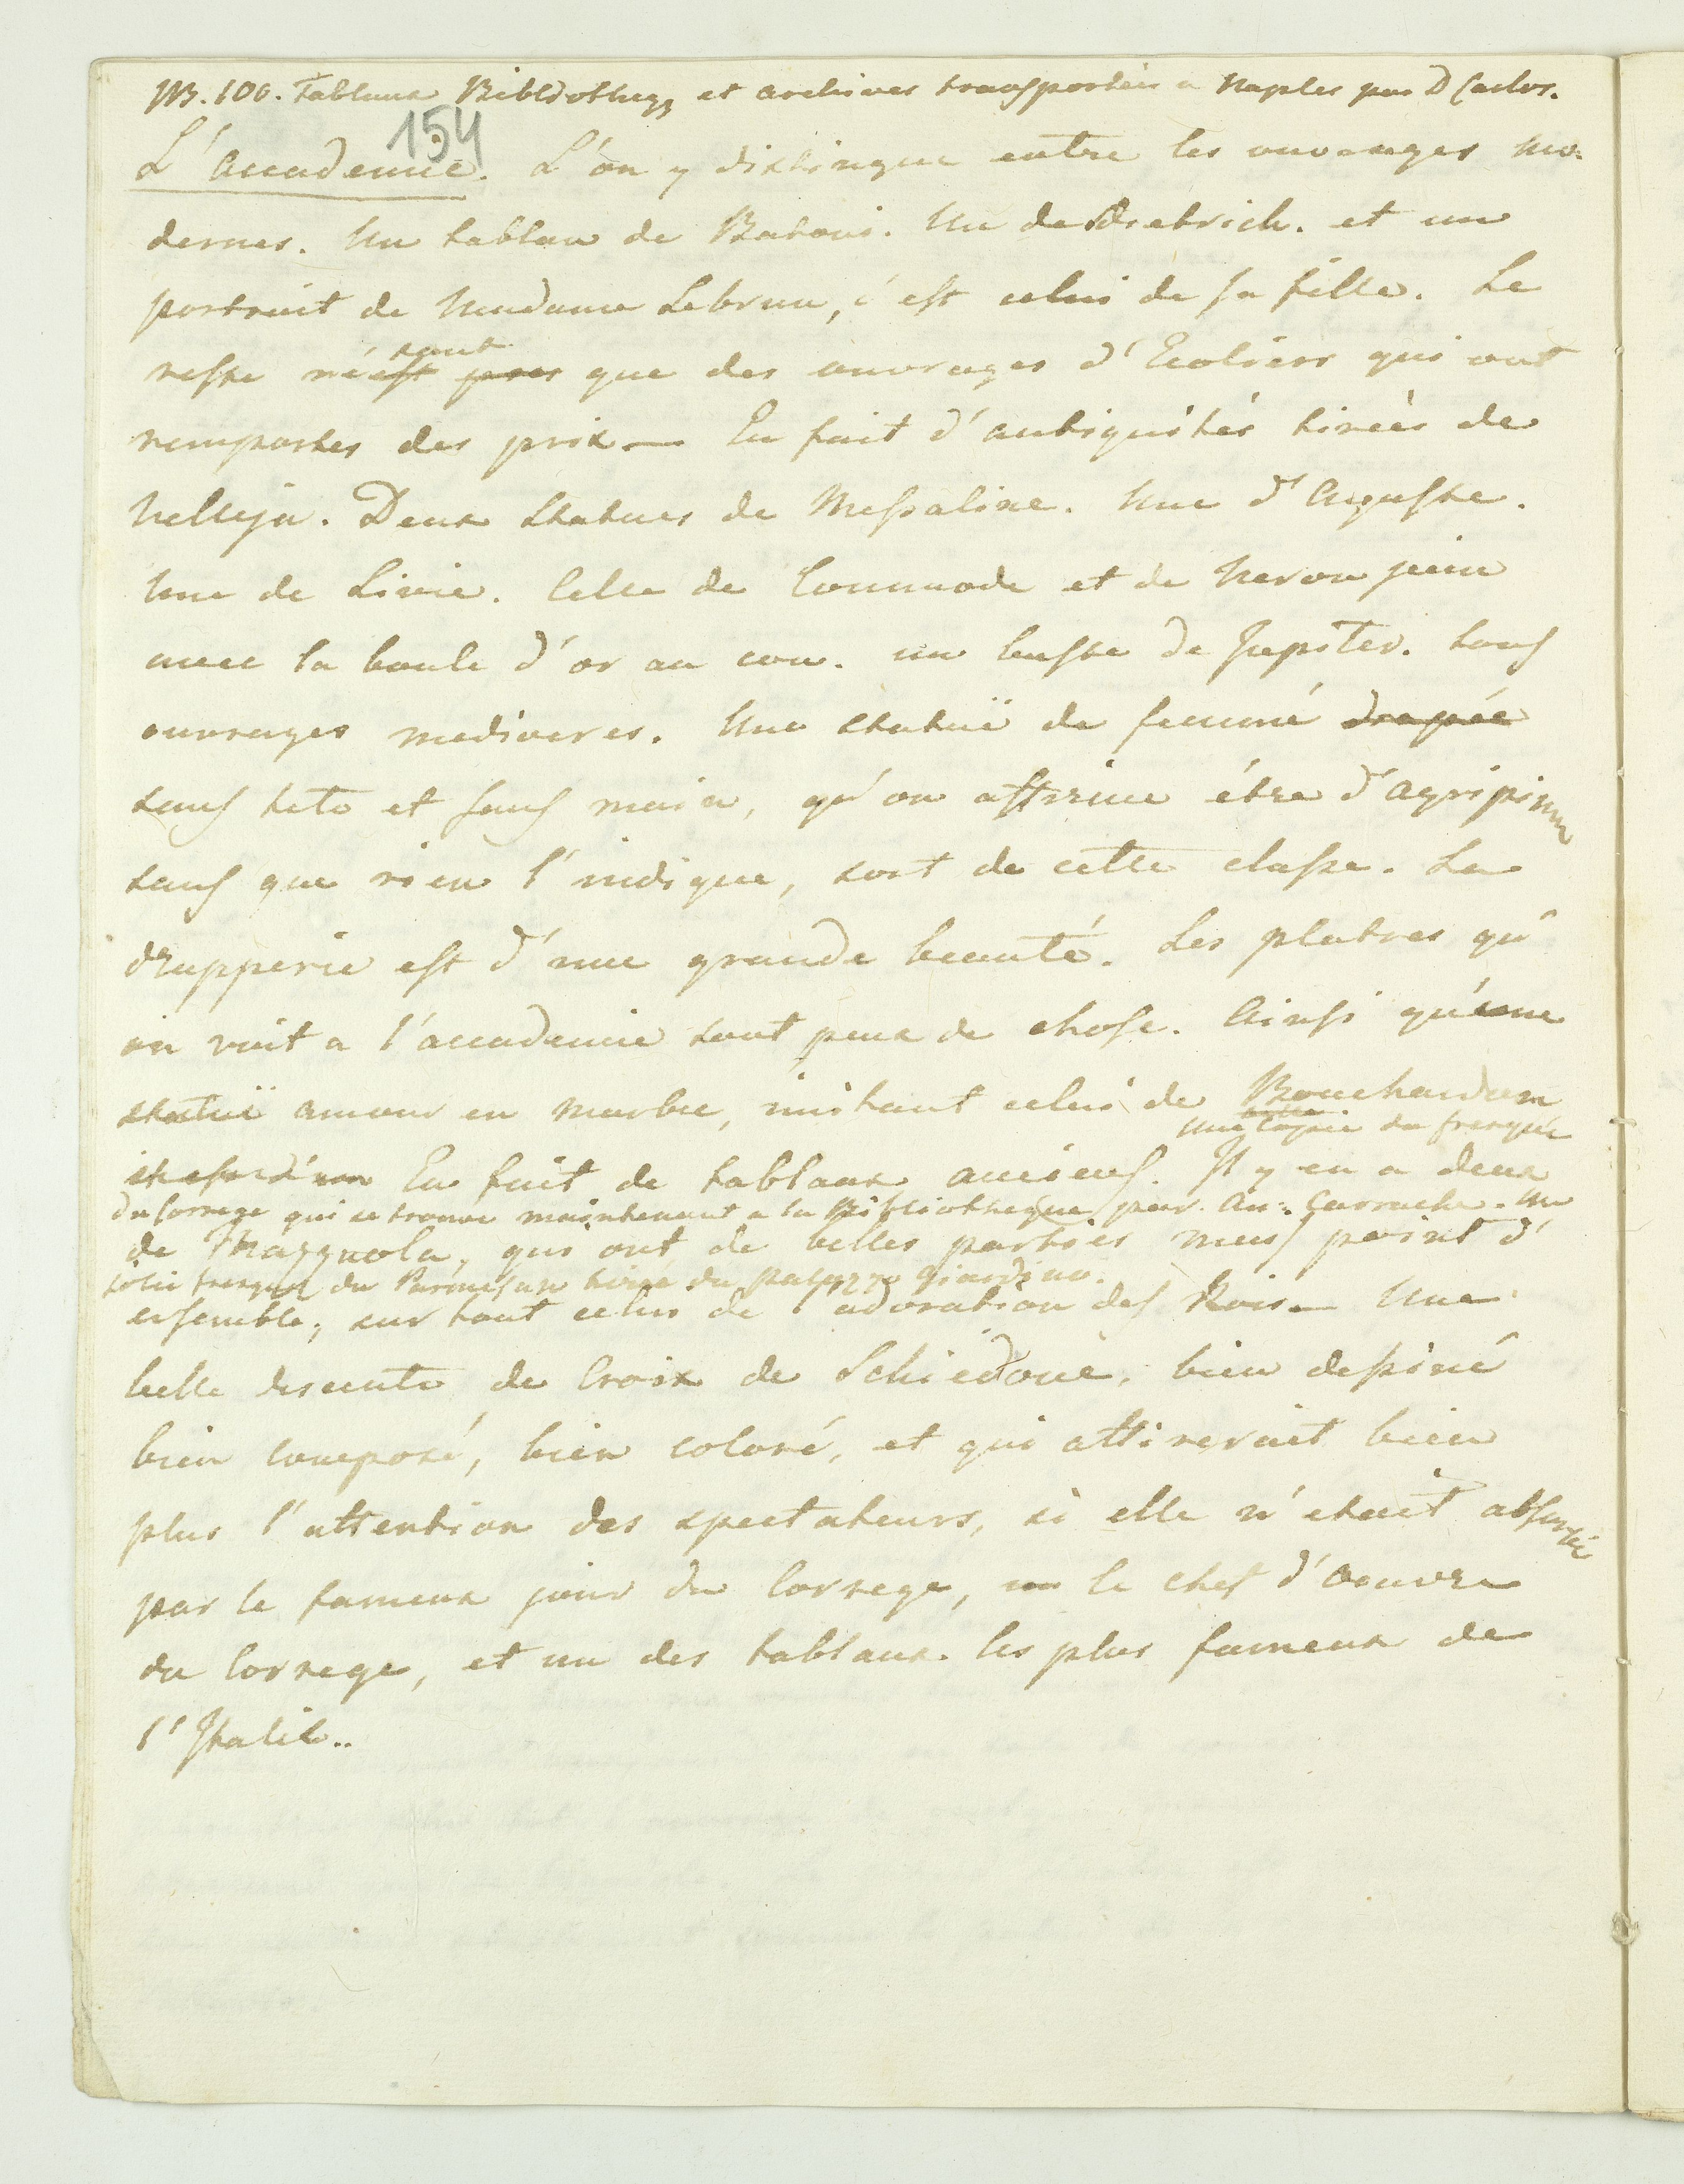 NB. 100. Tableaux Bibliotheqs et archives transportées a Naples par D Carlos.
154
L'accademie. L'on y distingue entre les ouvrages mo-
dernes. Un tablau de Batoni. Un de Dietrich. et un
portrait de Madame Lebrun, c'est celui de sa fille. Le
sont
reste n'est pas que des ouvrages d'Ecoliers qui ont
remportes des prix — En fait d'antiquités tirées de
Velleja. Deux statues de Messaline. Une d'Auguste.
Une de Livie. Celle de Commode et de Neron jeune
avec la boule d'or au cou. un buste de Jupiter. tous
ouvrages mediocres. Une statuë de femme drapée
sans tete et sans main, qu'on affirme étre d'Agripine
sans que rien l'indique, sort de cette classe. La
drapperie est d'une grande beauté. Les platres qu'
on voit a l'accademie sont peux de chose. Ainsi qu'une
statuë amour en marbre, imitant celui de Bouchardon
une copie du fresque
En fait de tablaux anciens. Il y en a deux
du Correge qui se trouve maintenant a la Bibliotheque par An: Carrache. une
de Mazzuola, qui ont de belles parties mais point d'
jolie fresque du Parmesan tirée du Palazzo Giardino.
ensemble, sur tout celui de l'adoration des Rois — Une
belle descente de Croix de Schiedone, bien dessiné
bien composé, bien coloré, et qui attireroit bien
plus l'attention des spectateurs, si elle n'etait absorbée
par le fameux jour du Correge, le chef d'oeuvre
du Correge, et un des tablaux les plus fameux de
l'Italie..